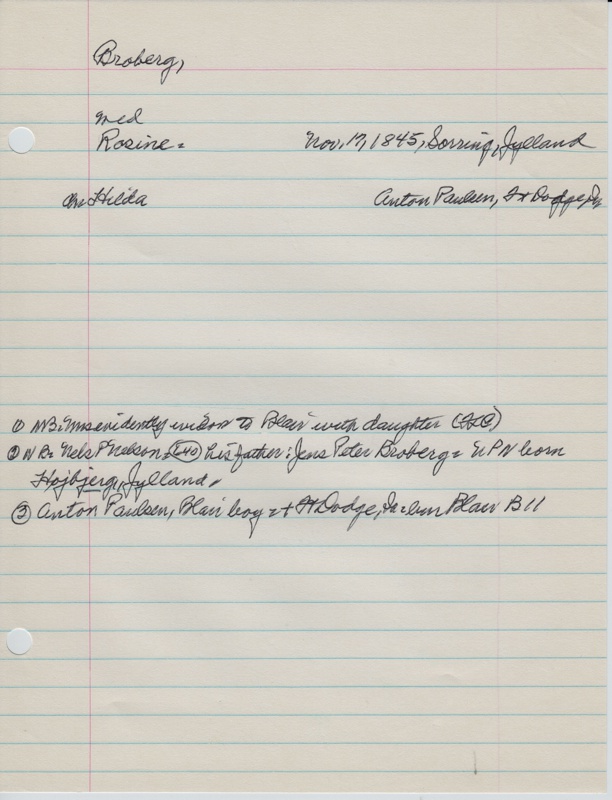 Broberg,
med
Rosine = Nov. 17, 1845, Sorring, Jylland
Hilda Anton Paulsen, Ft Dodge, Ia
① NB: Mrs evidently widow to Blair with daughter
② NB: Nels P Nelson his father: Jens Peter Broberg = NPN born
Hojbjerg, Jylland,
③ Anton Paulsen, Blair boy = + Ft Dodge, Ia = bur Blair B 11